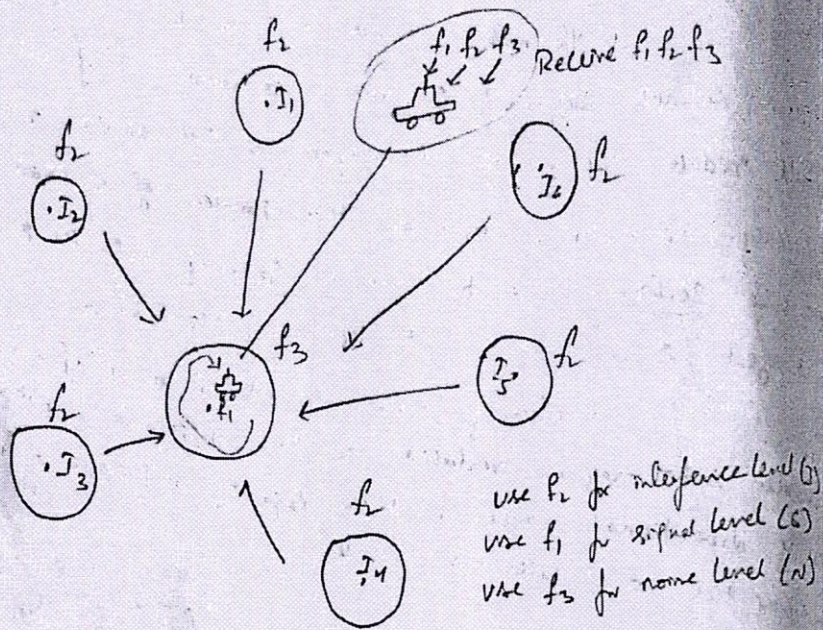 f₂
.I₁
f₁ f₂ f₃
Receive f₁ f₂ f₃
f₂
.I₂
I₆
f₂
f₃
f₁
I₅
f₂
f₂
.I₃
f₂
I₄
use f₂ for interference level (I)
use f₁ for signal level (S)
use f₃ for noise level (N)